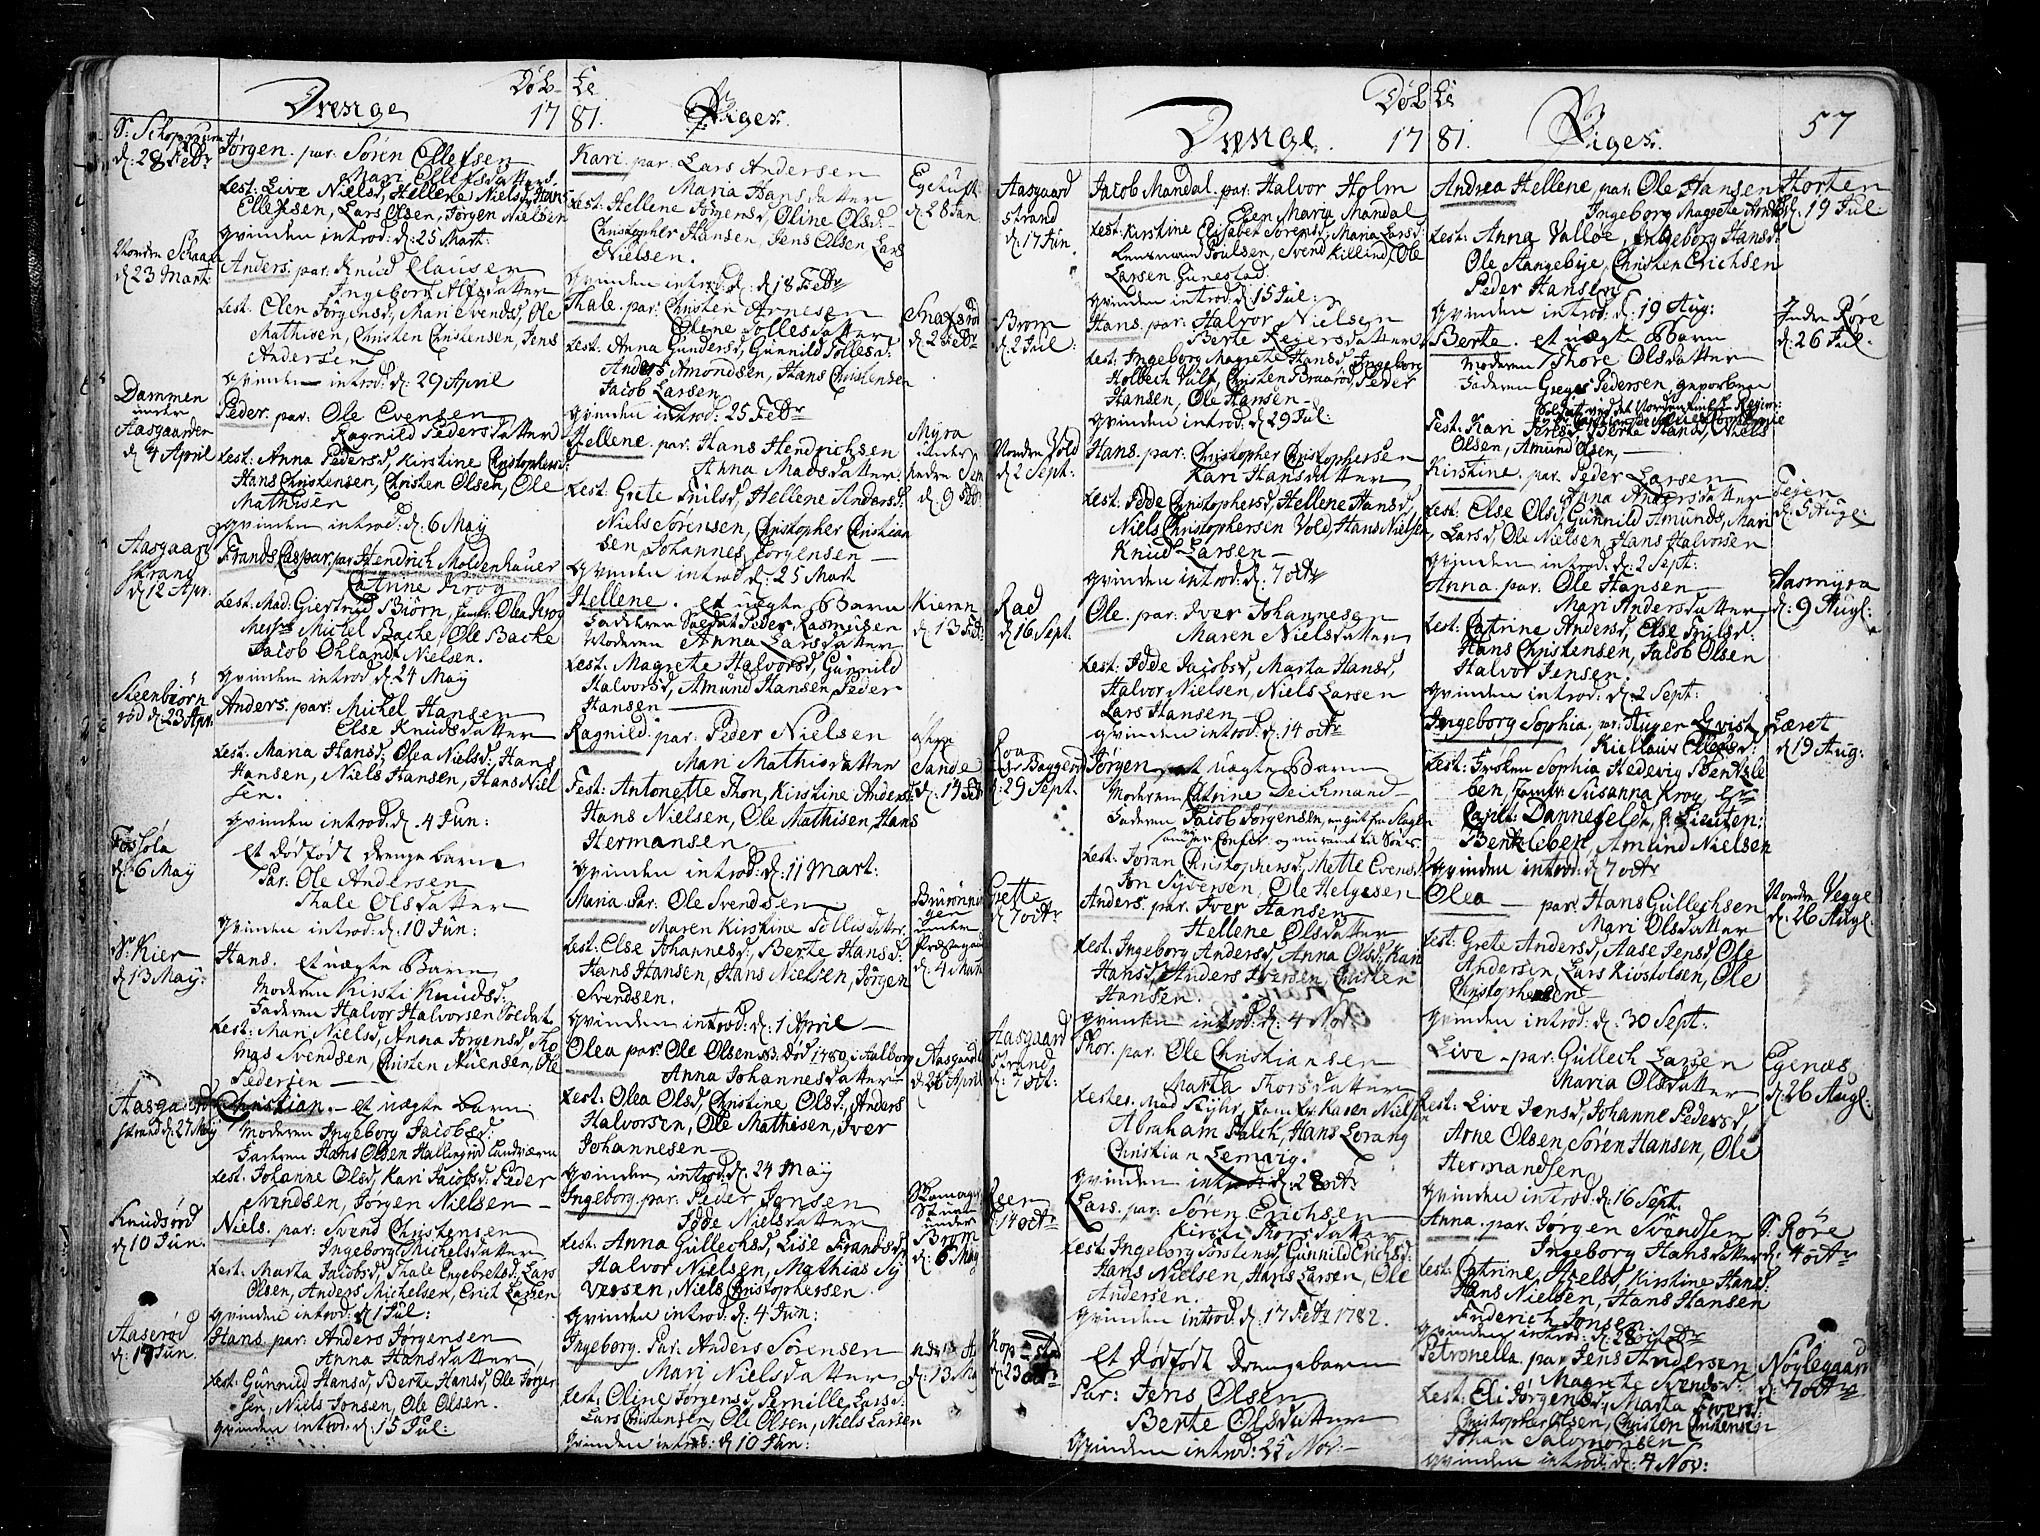 Døbte
Drenge 1781. Piger.
d: 28 Febr
Jørgen. par. Søren Ellefsen
Mari Ellefsdatter
test: Live Nielsd, Hellene Nielsd, Hans
Ellefsen, Lars Olsen, Jørgen Nielsen
qvinden introd: d: 25 Mart:
Nordre Schaan
d: 23 Mart:
Anders. par: Knud Clausen
Ingebor Alfsdatter
test: Elen Jørgensd, Mari Svendsd, Ole
Mathisen, Christen Christensen, Jens
Andersen
qvinden introd: d: 29 April
Dammen
under
Aasgaarden
d: 4 April
Peder. par: Ole Evensen
Ragnild Pedersdatter
test: Anna Pedersd, Kirstine Christophersd
Hans Christensen, Christen Olsen, Ole
Mathisen
qvinden introd: d: 6 May
Aasgaard
strand
d: 12 Apr:
Frands Caspar. par Hendrich Moldenhauer
Catrine Krog
test: Mad: Giertrud Biørn, Jomfr: Olea Krog
Messrs Michel Backe, Ole Backe
Jacob Ohlandt Nielsen.
qvinden introd: d. 24 May
Steenbiørn
rød d. 23 Apr.
Anders. par: Michel Hansen
Else Knudsdatter
test: Maria Hansd, Olea Nielsd, Hans
Hansen, Niels Hansen, Hans Niel
sen.
qvinden introd: d. 4 Jun:
d: 6 May
et dødfødt drenge barn
Par: Ole Andersen
Thale Olsdatter
qvinden introd: d. 10 Jun:
Nr Kier
d: 13 May:
Hans. et uægte Barn
Moderen Kirsti Knudsd:
Faderen Halvor Halvorsen Soldat
test: Mari Nielsd, Anna Jørgensd, Tho
mas Svendsen, Christen Auensen, Ole
Pedersen
Aasgaard
strand d: 27 May
Christian. et uægte barn
Moderen Ingeborg Jacobsd:
Faderen Hans Olsen Hallingrød Landværn
test: Johanne Olsd, Kari Jacobsd: Peder
Svendsen, Jørgen Nielsen
Knudsrød
d: 10 Jun.
Niels. par: Svend Christensen
Ingeborg Michelsdatter
test: Marta Jacobsd, Thale Engebretsd, Lars
Olsen, Anders Michelsen, Erich Larsen
qvinden introd: d: 1 Jul:
Aaserød
d: 17 Jun.
Hans par: Anders Jørgensen
Anna Hansdatter
test: Gunnild Hansd, Berte Hansd, Ole Jørgen
sen, Niels Jonsen, Ole Olsen.
qvinden introd: d: 15 Jul:
Kari. par: Lars Andersen
Maria Hansdatter
test: Hellene Jørgensd, Oline Olsd:
Christopher Hansen, Jens Olsen, Lars
Nielsen.
qvinden introd: d: 18 Febr
d: 28 Jan.
Thale. par: Christen Arnesen
Elene Tollesdatter
test: Anna Gundersd, Gunnild Tollesd:
Anders Amondsen, Hans Christensen
Jacob Larsen
qvinden introd: 25 Febr
d: 2 Febr
Hellene. par: Hans Hendrichsen
Anna Madsdatter
test: Grete Truilsd, Hellene Andersd:
Niels Sørensen, Christopher Christian
sen, Johannes Jørgensen
qvinden introd: d: 25 Mart
Myra
under
d. 9 Febr
Hellene. et uægte Barn
Faderen Soldat Peder Rasmusen
Moderen Anna Larsdatter
test: Magrete Halvorsd, Gunnild
Halvorsd, Amund Hansen, Peder
Hansen
Kieran
d: 13 Febr
Ragnild. par: Peder Nielsen
Mari Mathisdatter
Test: Antonette Thon, Kirstine Andersd:
Hans Nielsen, Ole Mathisen, Hans
Hermansen
qvinden introd: d: 11 Mart:
Sande
Maria. Par: Ole Svendsen
Maren Kirstine Tollisdatter.
test: Else Johannesd, Berte Hansd:
Hans Hansen, Hans Nielsen, Jørgen
Svendsen.
qvinden introd: d: 1 April
under
Præstegaar
d: 4 Mart
Olea par: Ole Olsen død 1780 i Aalborg
Anna Johannesdatter
test: Olea Olsd, Christine Olsd, Anders
Halvorsen, Ole Mathisen, Iver
Johannesen
qvinden introd: d: 24 May
Ingeborg. par: Peder Jonsen
Idde Nielsdatter
test: Anna Gullechsd, Lise Frandsd,
Halvor Nielsen, Mathias Sy
versen, Niels Christophersen.
qvinden introd: d: 4 Jun:
under
Brom
d: 6 May
Ingeborg. Par: Anders Sørensen
Mari Nielsdatter
test: Oline Jørgensd, Pernille Larsd:
Lars Christensen, Ole Olsen, Niels Larsen
qvinden introd: d: 10 Jun:
d: 13 May
Døbte
Drenge. 1781. Piger.
57
Aasgaard
strand
d: 17 Jun.
Jacob Mandal. par: Halvor Holm
Elen Maria Mandal
test: Kirstine Elisabet Sørensd, Maria Larsd:
Lensmand Poulsen, Svend Killind, Ole
Larsen Gunestad
qvinden introd: d: 15 Jul:
Brom
d: 2 Jul:
Hans. par: Halvor Nielsen
Berte Reiersdatter
test: Ingeborg Magrete Hansd, Ingeborg
Holbech Vulf, Christen Braarød, Peder
Hansen, Ole Hansen
qvinden introd: d: 29 Jul:
Nordre Vold
d: 2 Sept:
Hans. par: Christopher Christophersen
Kari Hansdatter
test: Idde Christophersd, Hellene Hansd,
Niels Christophersen Vold, Hans Nielsen
Knud Larsen
qvinden introd: d: 7 octr
Rød
d: 16 Sept.
Ole. par: Iver Johannesen
Maren Nielsdatter
test: Idde Jacobsd, Marta Hansd,
Halvor Nielsen, Niels Larsen
Lars Hansen
qvinden introd: d: 14 octr
d: 29 Sept.
Jørgen. et uægte Barn
Moderen Catrine Deichmand
Faderen Jacob Jørgensen,
test: Joran Christophersd, Mette Evensd
Jon Syversen, Ole Helgesen
Grette
d: 7 octr
Anders. par: Iver Hansen
Hellene Olsdatter
test: Ingeborg Andersd, Anna Olsd, Kari
Hansd, Anders Iversen, Christen
Hansen.
qvinden introd: d: 4 Nov:
Aasgaard
strand
d: 7 oct:
Thor. par: Ole Christiansen
Marta Thorsdatter
testes. Mad Kyhr, Jomfr Karen Nielsen
Abraham Falch, Hans Lorang
Christian Lemvig.
qvinden introd: d: 28 octr
d: 14 octr
Lars. par: Søren Erichsen
Kirsti Thorsdatter
test: Ingeborg Torstensd, Gunnild Erichsd:
Hans Nielsen, Hans Larsen, Ole
Andersen.
qvinden introd: d: 17 Febr 1782.
d: 23 octr
et Dødfødt Drengebarn
Par: Jens Olsen
Berte Olsdatter
qvinden introd: 25 Nov:
Andrea Hellene. par: Ole Hansen
Ingeborg Magrete
test: Anna Valløe, Ingeborg Hansd:
Ole Stangebye, Christen Erichsen
Peder Hansen
qvinden introd: d: 19 Aug:
Horten
d: 19 Jul:
Berte. et uægte Barn
Moderen Thore Olsdatter
Faderen Greger Pedersen, geworben
Soldat ved det Nordenfieldske Regim:
Test: Kari Jensd, Berte Hansd, Niels
Olsen, Amund Olsen,
Indre Røre
d: 26 Jul.
Kirstine. par: Peder Larsen
Anna Andersdatter
test: Else Olsd, Gunnild Amunds, Mari
Larsd, Ole Nielsen, Hans Halvorsen
qvinden introd: d: 2 Sept:
Feien
d: 5 Aug:
Anna. par. Ole Hansen
Mari Andersdatter
test: Catrine Andersd, Else Truilsd:
Hans Christensen, Jacob Olsen
Halvor Jensen
qvinden introd. d: 2 Sept:
Aasmyra
d: 9 Augl:
Ingeborg Sophia, par: Auger Qvist
test: Frøken Sophia Hedevig Bentzle
ben, Jomfr: Susanna Krog,
Capit: Dannefeldt, P: Lieuten:
Bentzleben, Amund Nielsen
qvinden introd: d: 7 octr
Læret
d: 19 Aug:
Olea par: Hans Gullechsen
Mari Olsdatter
test: Grete Andersd, Aase Jensd, Ole
Andersen, Lars Kiostolsen, Ole
Christophersen
qvinden introd: d: 30 Sept.
Nordre Vegge
d: 26 Augl
Live par: Gullech Larsen
Maria Olsdatter
test: Live Jensd, Johanne Pedersd,
Arne Olsen, Søren Hansen, Ole
Hermandsen
qvinden introd: d: 16 Sept.
Egenæs
d: 26 Augl
Anna. par: Jørgen Svendsen
Ingeborg Hansdatter
test: Catrine Nielsd, Kirstine Hansd:
Hans Nielsen, Hans Hansen
Friderich Jonsen
qvinden introd: d: 28 octbr
Sr Røre
d: 4 octr
Petronella. par: Jens Andersen
Magrete Svendsd:
test: Eli Jørgensd, Marta Iversd:
Christopher Olsen, Christen Christensen
Johan Salomonsen
qvinden introd: d: 4 Nov:
Nøylegaard
d: 7 octr